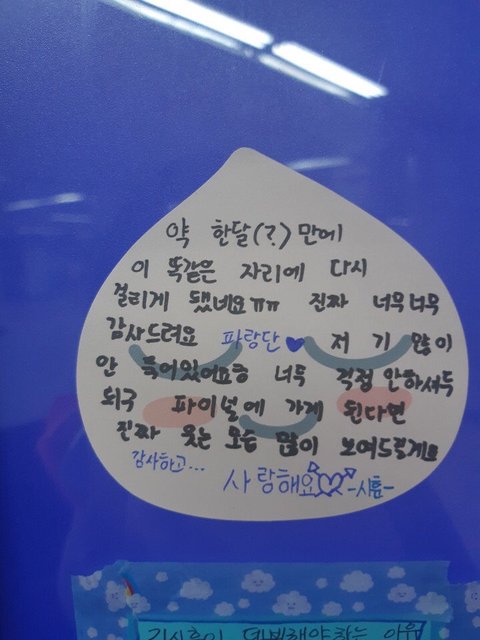 약 한달(?)만에
이 똑같은 자리에 다시
걸리게 됐네요ㅠㅠ 진짜 너무너무
감사드려요 파랑단♥ 저 기 많이
안 죽어있어요ㅎ 너무 걱정 안하셔두
되구 파이널에 가게 된다면
진짜 웃는 모습 많이 보여드릴게요
감사하고...
사랑해요♡ -시훈-
김시훈이 데뷔해야하는 이유